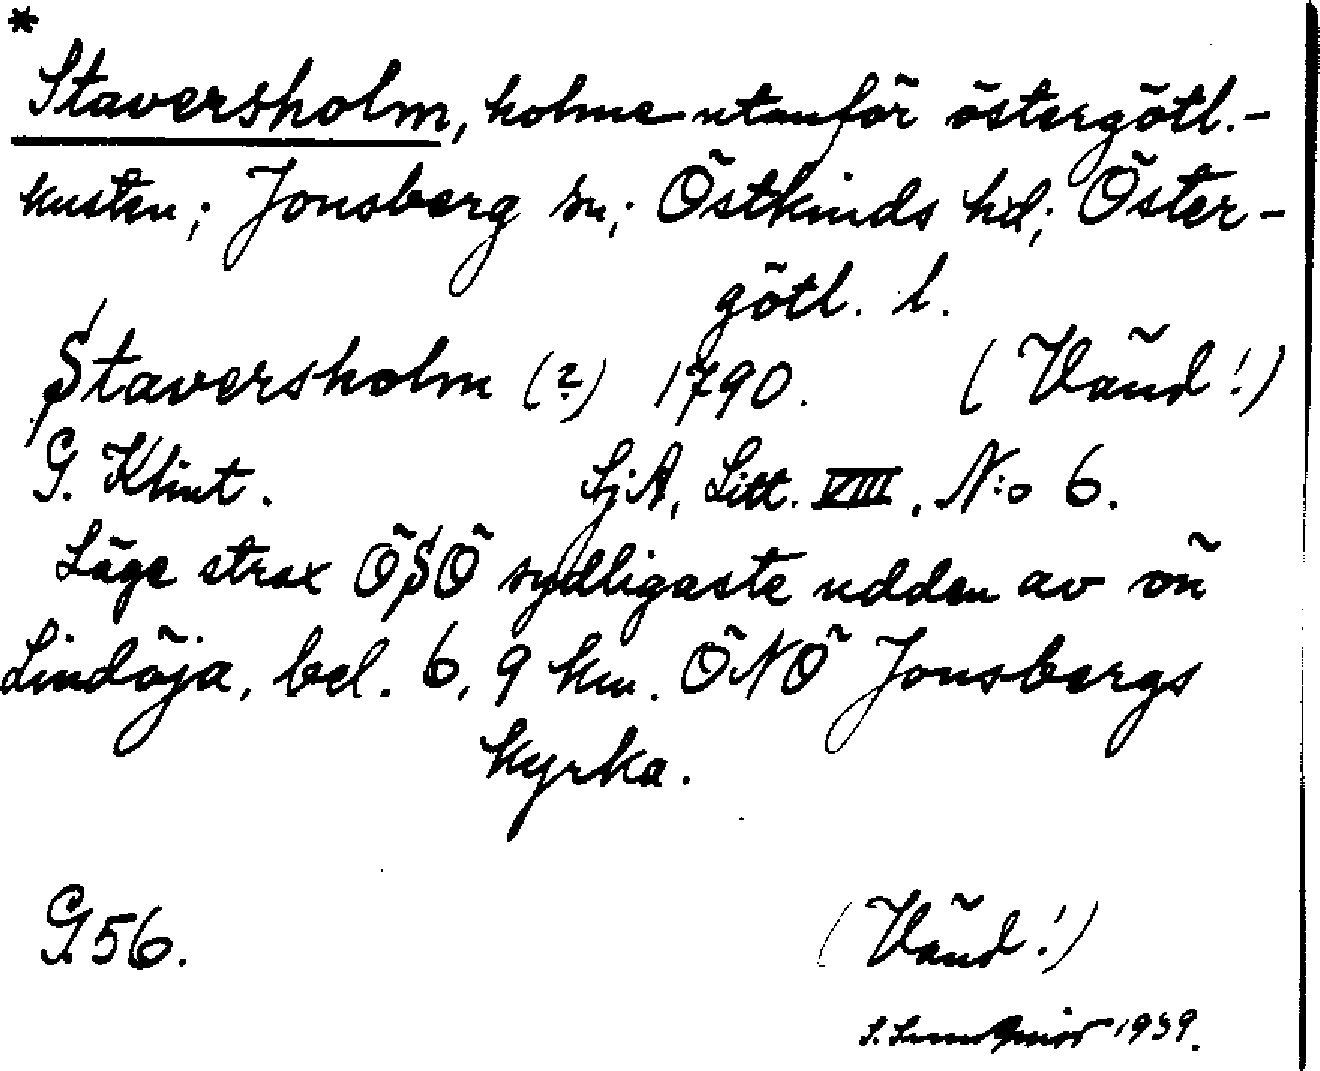 *
Staversholm, holme utanför östergötl.-
kusten; Jonsberg sn; Östkinds hd; Öster-
götl. l.
Staversholm (?) 1790. (Vänd!)
G. Klint. SjA, Litt. VIII. N:o 6.
Läge strax ÖSÖ sydligaste udden av ön
Lindöja, bel. 6,9 km. ÖNÖ Jonsbergs
kyrka.
G56. (Vänd!)
S. Lundqvist 1939.